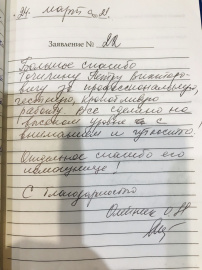 24. март 2021
Заявление № 22
Большое спасибо
Точилину Петру Викторо-
вичу за профессиональную,
честную, кропотливую
работу. Все сделано на
высоком уровне с
вниманием и чуткостью.
Отдельное спасибо его
помощнице!
С благодарностью